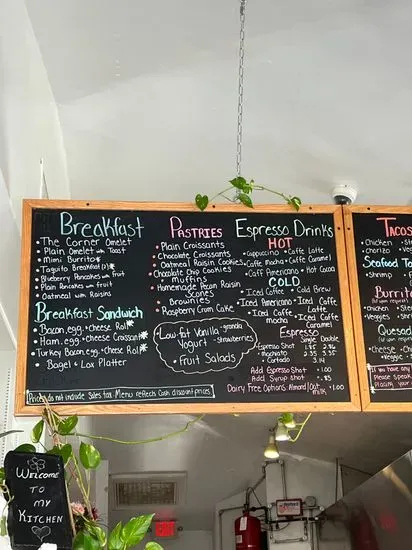 Breakfast
• The Corner Omelet
• Plain Omelet with Toast
• Mini Burrito
• Taquito Breakfast
• Blueberry Pancakes with Fruit
• Plain Pancakes with fruit
• Oatmeal with Raisins
Breakfast Sandwich
• Bacon, egg, + Cheese Roll
• Ham, egg, + Cheese Croissant
• Turkey Bacon, egg, + Cheese Roll
• Bagel + Lox Platter
Prices do not include Sales Tax. Menu reflects Cash discount prices.
Pastries
• Plain Croissants
• Chocolate Croissants
• Oatmeal Raisin Cookies
• Chocolate Chip Cookies
• Muffins
• Homemade Pecan Raisin
Scones
• Brownies
• Raspberry Crum Cake
Low-fat Vanilla
Yogurt
- granola
- Strawberries
• Fruit Salads
Espresso Drinks
HOT
• Cappuccino • Caffe Latte
• Caffe Mocha • Caffe Caramel
• Caff Americano • Hot Cocoa
COLD
• Iced Coffee • Cold Brew
• Iced Americano • Iced Caffe
Latte
• Iced Caffe
Mocha
• Iced Caffe
Caramel
Espresso
Single Double
• Espresso Shot
• Machiato 2.35 3.35
• Cortado 3.14
Add Espresso Shot • 1.00
Add Syrup Shot • .85
Dairy Free Options Almond/Oat • 1.00
Milk
Tacos
• Chicken
• chorizo
Seafood Ta
• Shrimp
Burrit
• Chicken
• Veggies
Quesad
• Cheese
• Chicken
• Shrimp
If you have any
Please speak
placing your
Welcome
To
my
Kitchen
EXIT